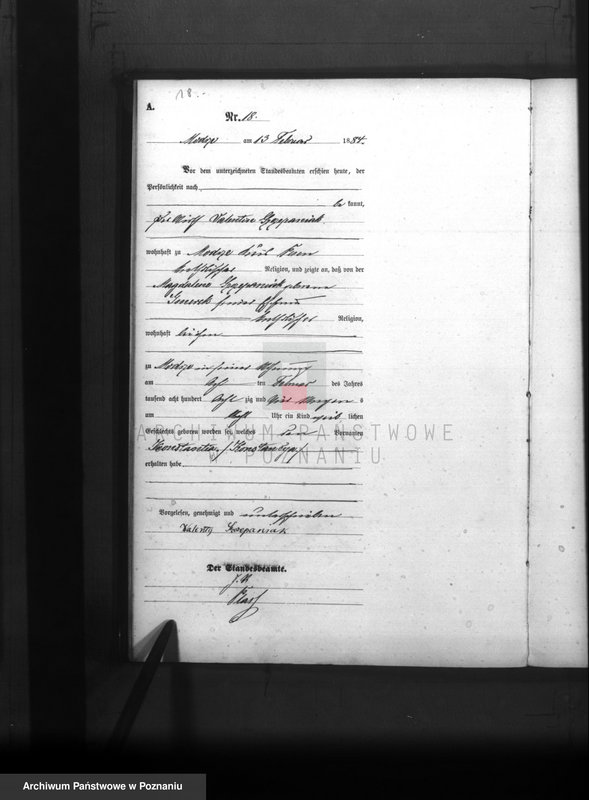 18.
A.
Nr. 18.
am 13 Februar 1884.
Vor dem unterzeichneten Standesbeamten erschien heute, der
Persönlichkeit nach
be kannt,
Valentin Szczepaniak
wohnhaft zu
katholischer Religion, und zeigte an, daß von der
Magdalena Szczepaniak geborenen
seiner Ehefrau
katholischer Religion,
wohnhaft bei ihm
zu in seiner Wohnung
am acht ten Februar des Jahres
tausend acht hundert acht zig und vier Morgens
um Uhr ein Kind weib lichen
Geschlechts geboren worden sei, welches Vornamen
Konstantia
erhalten habe
Vorgelesen, genehmigt und unterschrieben
Walenty Szczepaniak
Der Standesbeamte.
J. V.
ARCHIWUM PAŃSTWOWE
W POZNANIU
Archiwum Państwowe w Poznaniu